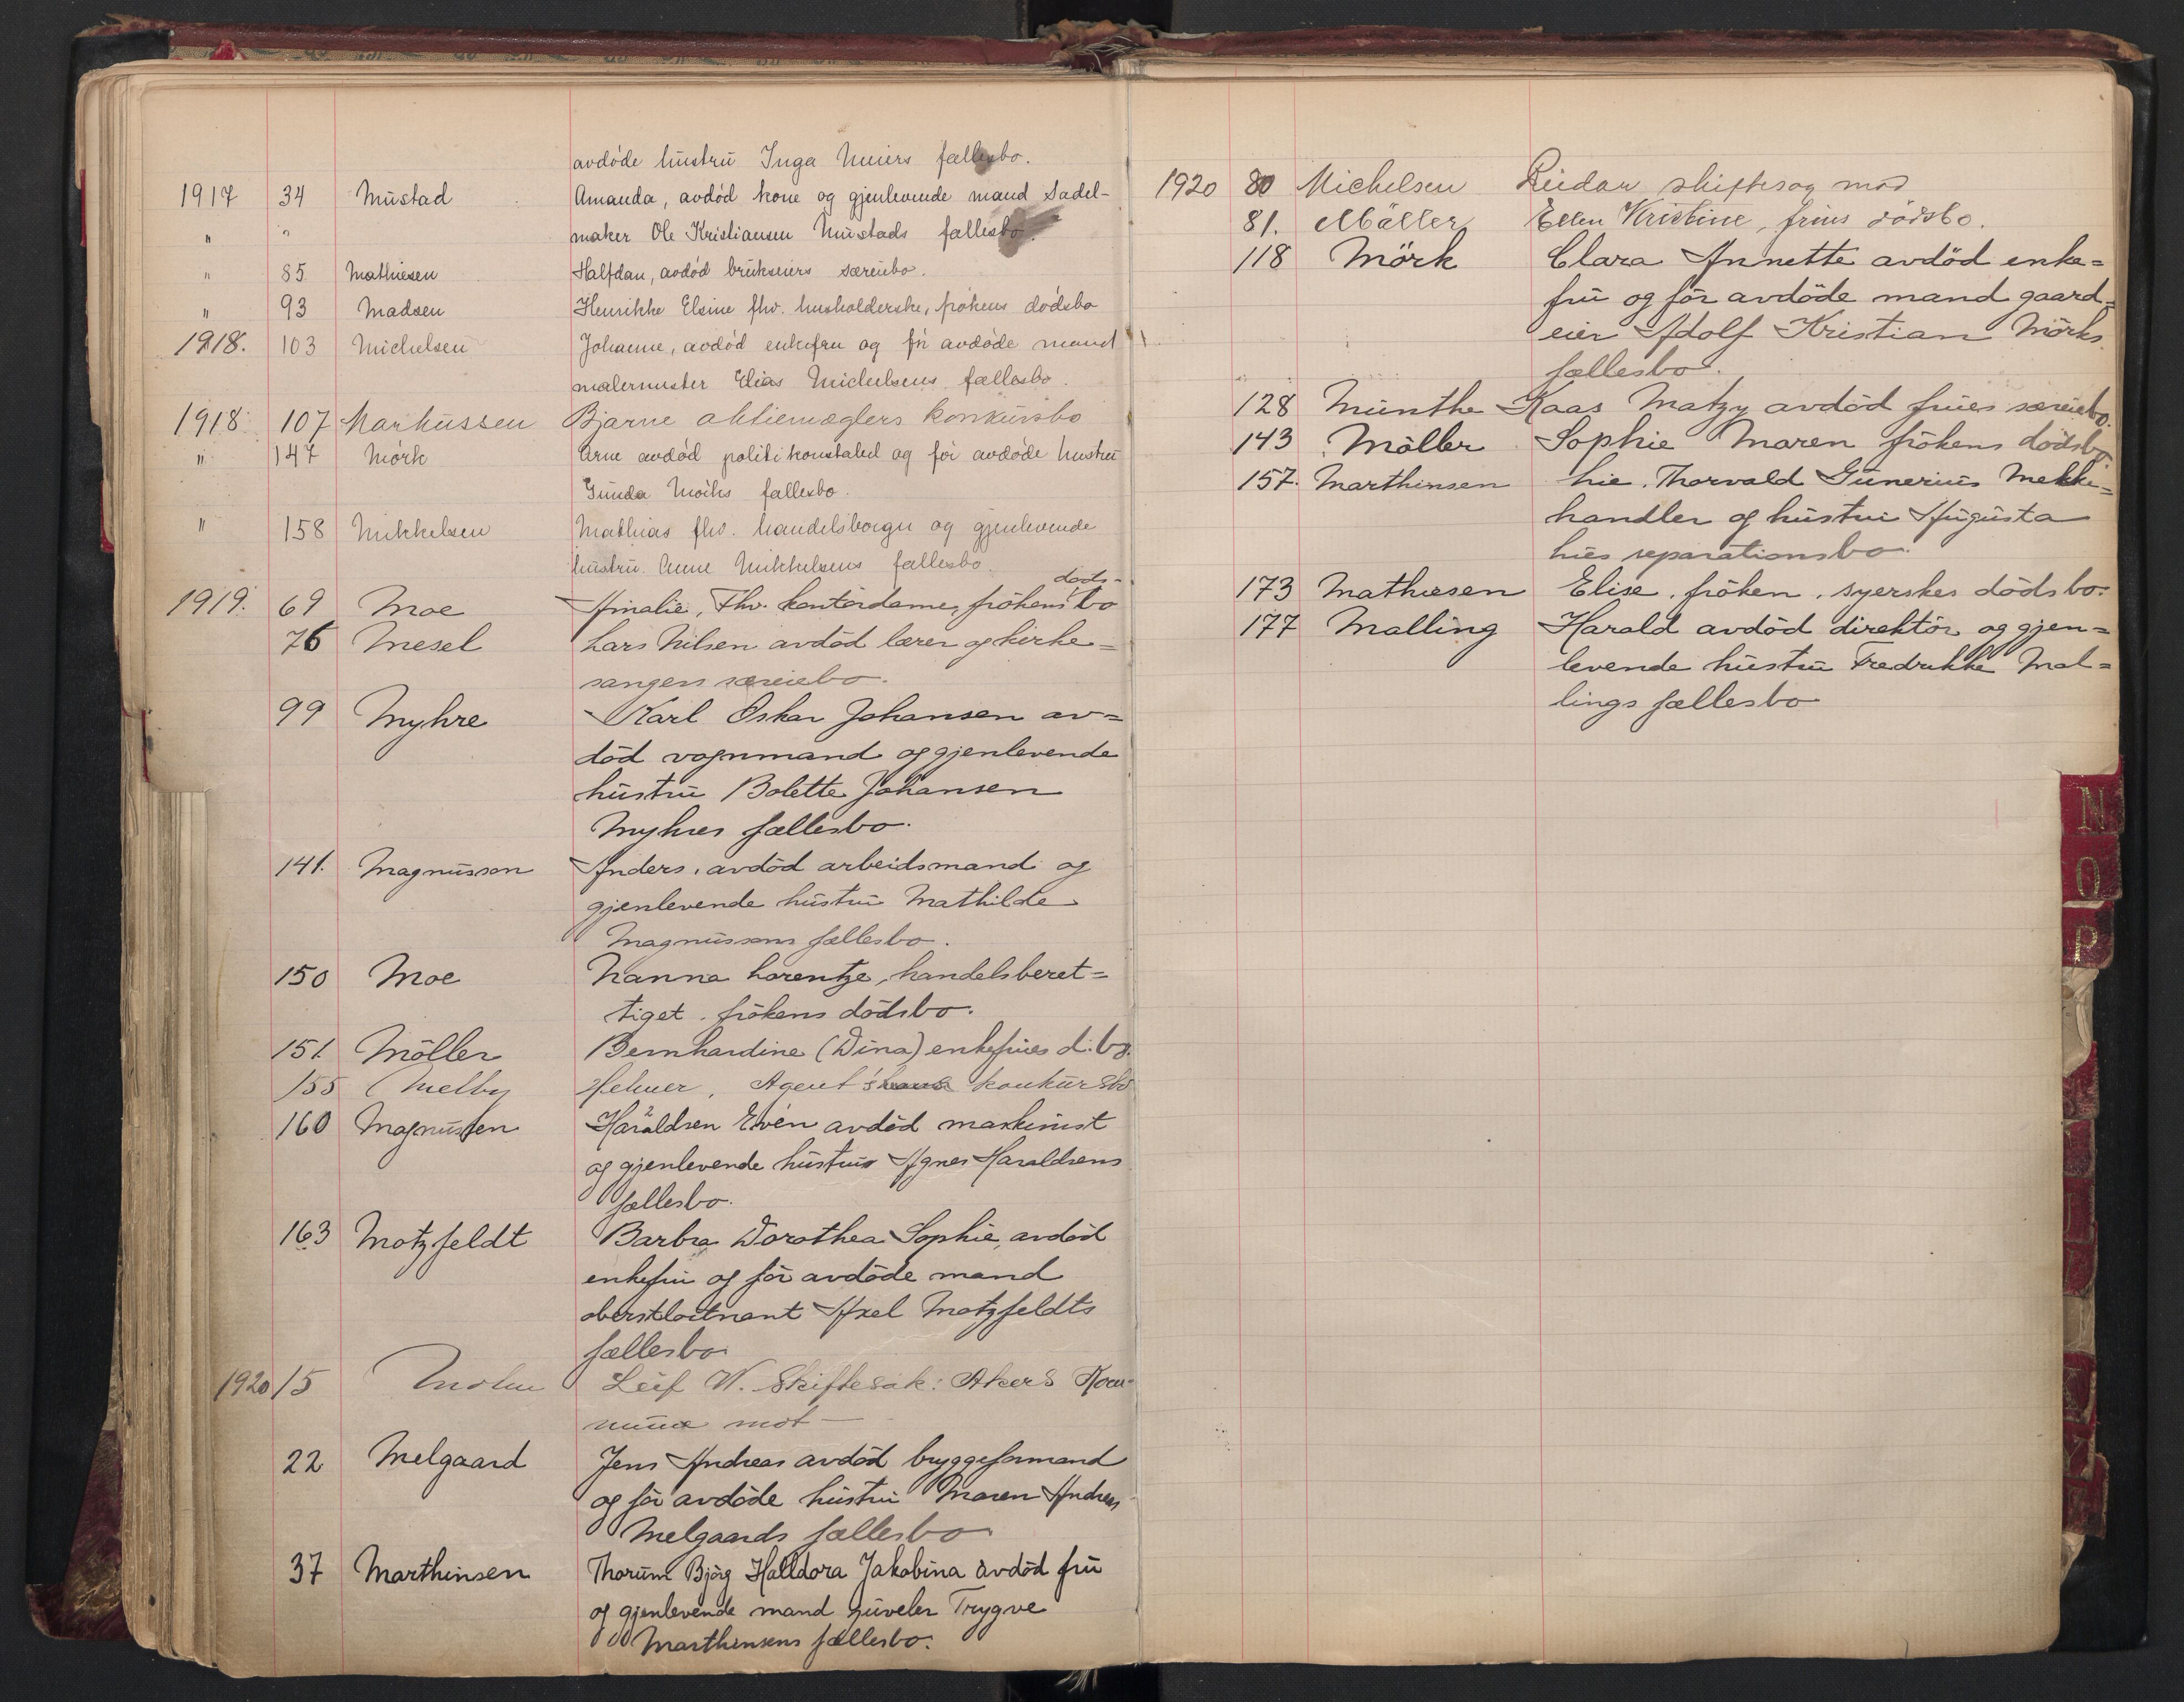 avdöde hustru Inga Meiers fællesbo.
1917 34 Mustad Amanda, avdöd kone og gjenlevende mand Sadel-
" " maker Ole Kristiansen Mustads fællesbo.
" 85 Mathiesen Halfdan, avdöd brukseiers særeiebo.
" 93 Madsen Henrikke Elsine fhv. husholderske, frökens dödsbo
1918. 103 Michelsen Johanne, avdöd enkefru og för avdöde mand
malermester Elias Michelsens fællesbo.
1918 107 Markussen Bjarne aktiemæglers konkursbo
" 147 Mörk Arne avdöd politikonstabel og för avdöde hustru
Gunda Mörks fællesbo.
" 158 Mikkelsen Mathias fhv. handelsborger og gjenlevende
hustru Anne Mikkelsens fællesbo.
1919. 69 Moe Amalie, Fhv. kontordame, frökens döds-bo
76 Mesel Lars Nilsen avdöd lærer og kirke=
sangers særeiebo.
99 Myhre Karl Oskar Johansen av=
död vognmand og gjenlevende
hustru Bolette Johansen
Myhres fællesbo.
141. Magnusson Anders, avdöd arbeidsmand og
gjenlevende hustru Mathilde
Magnussons fællesbo.
150 Moe Nanna Lorentze, handelsberet=
tiget, frökens dödsbo.
151. Möller Bernhardine (Dina) enkefrues d.bo.
155 Melby Helmer, Agents konkursbo
160 Magnussen Haraldsen Even avdöd maskinist
og gjenlevende hustru Agnes Haraldsens
fællesbo.
163 Motzfeldt Barbra Dorothea Sophie, avdöd
enkefru og för avdöde mand
oberstloitnant Axel Motzfeldts
fællesbo
1920 15 Mohn Leif W. Skiftesak: Akers Kom-
mune mot —
22 Melgaard Jens Andreas avdöd bryggeformand
og för avdöde hustru Maren Andrea
Melgaards fællesbo
37 Marthinsen Thorunn Björg Halldora Jakobina avdöd fru
og gjenlevende mand juveler Trygve
Marthinsens fællesbo.
1920 80 Michelsen Reidar skiftesag mod
81. Möller Ellen Kristine, frues dödsbo.
118 Mörk Clara Annette avdöd enke=
fru og för avdöde mand gaard=
eier Adolf Kristian Mörks
fællesbo.
128 Munthe Kaas Matzy avdöd frues særeiebo.
143 Möller Sophie Maren frökens dödsbo
157. Marthinsen Lie, Thorvald Gunerius Melke=
handler og hustru Augusta
Lies separationsbo.
173 Mathiesen Elise, fröken, syerskes dödsbo.
177 Malling Harald avdöd direktör og gjen=
levende hustru Fredrikke Mal=
lings fællesbo
N
O
P